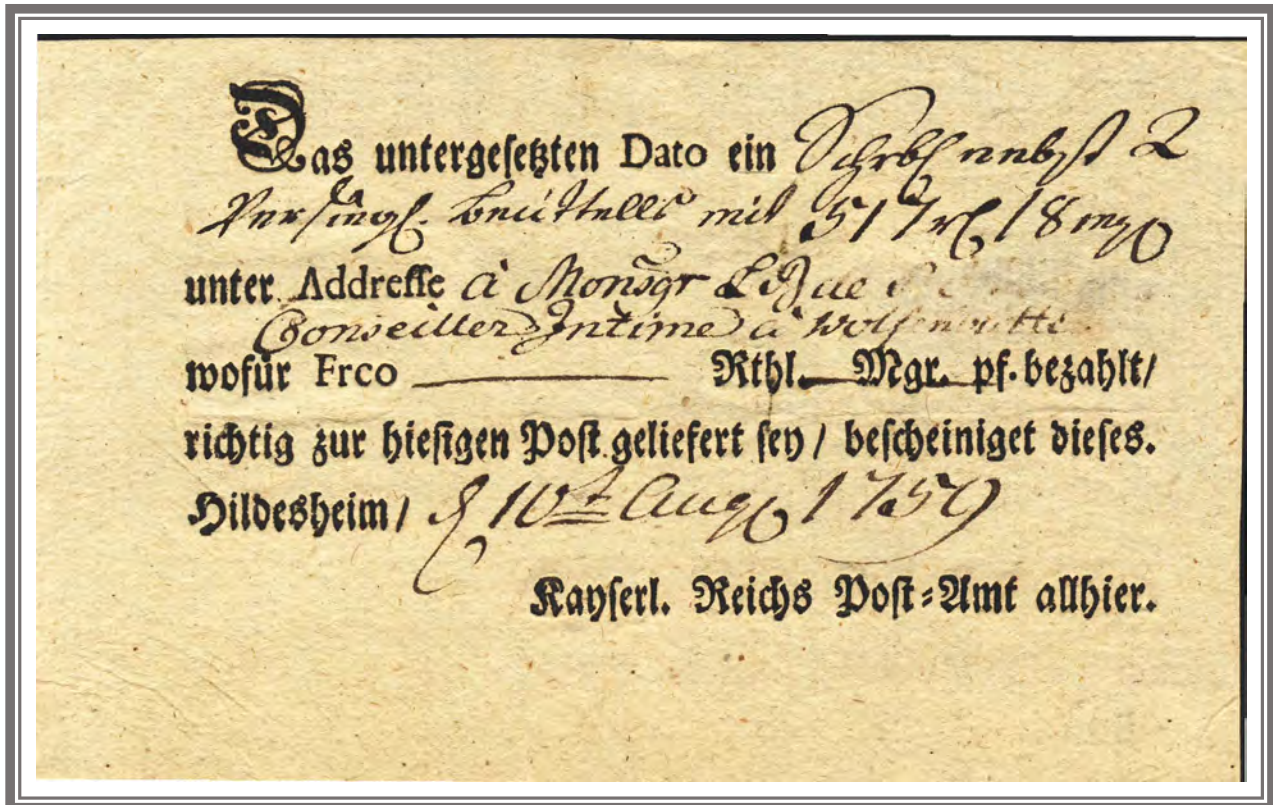 Das untergesetzten Dato ein Schrbs nebst 2
Versiegl. Beuttells mit 517 rl 18 mg
unter Addresse à Monsgr
Conseiller Intime à Wolfenbutte
wofür Frco Rthl. Mgr. pf. bezahlt/
richtig zur hiesigen Post geliefert sey / bescheiniget dieses.
Hildesheim / d 10t Aug 1759
Kayserl. Reichs Post-Amt allhier.